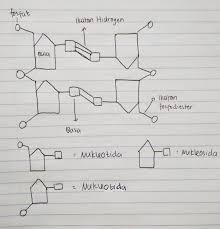 fosfat
Ikatan Hidrogen
Basa
Ikatan
fosfodiester
Basa
= Nukleotida
= Nukleosida
= Nukleotida